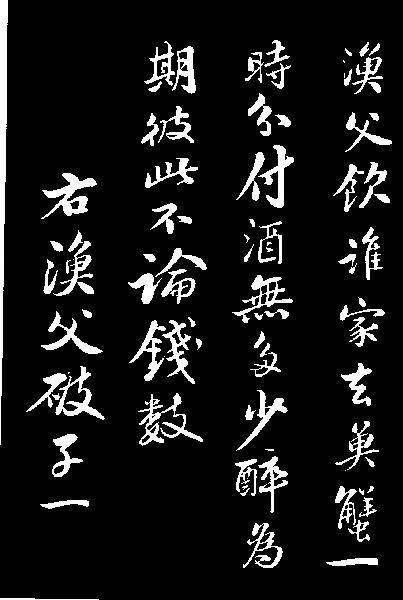 漁父飲誰家去魚蟹一
時分付酒無多少醉為
期彼此不論錢數
右漁父破子一